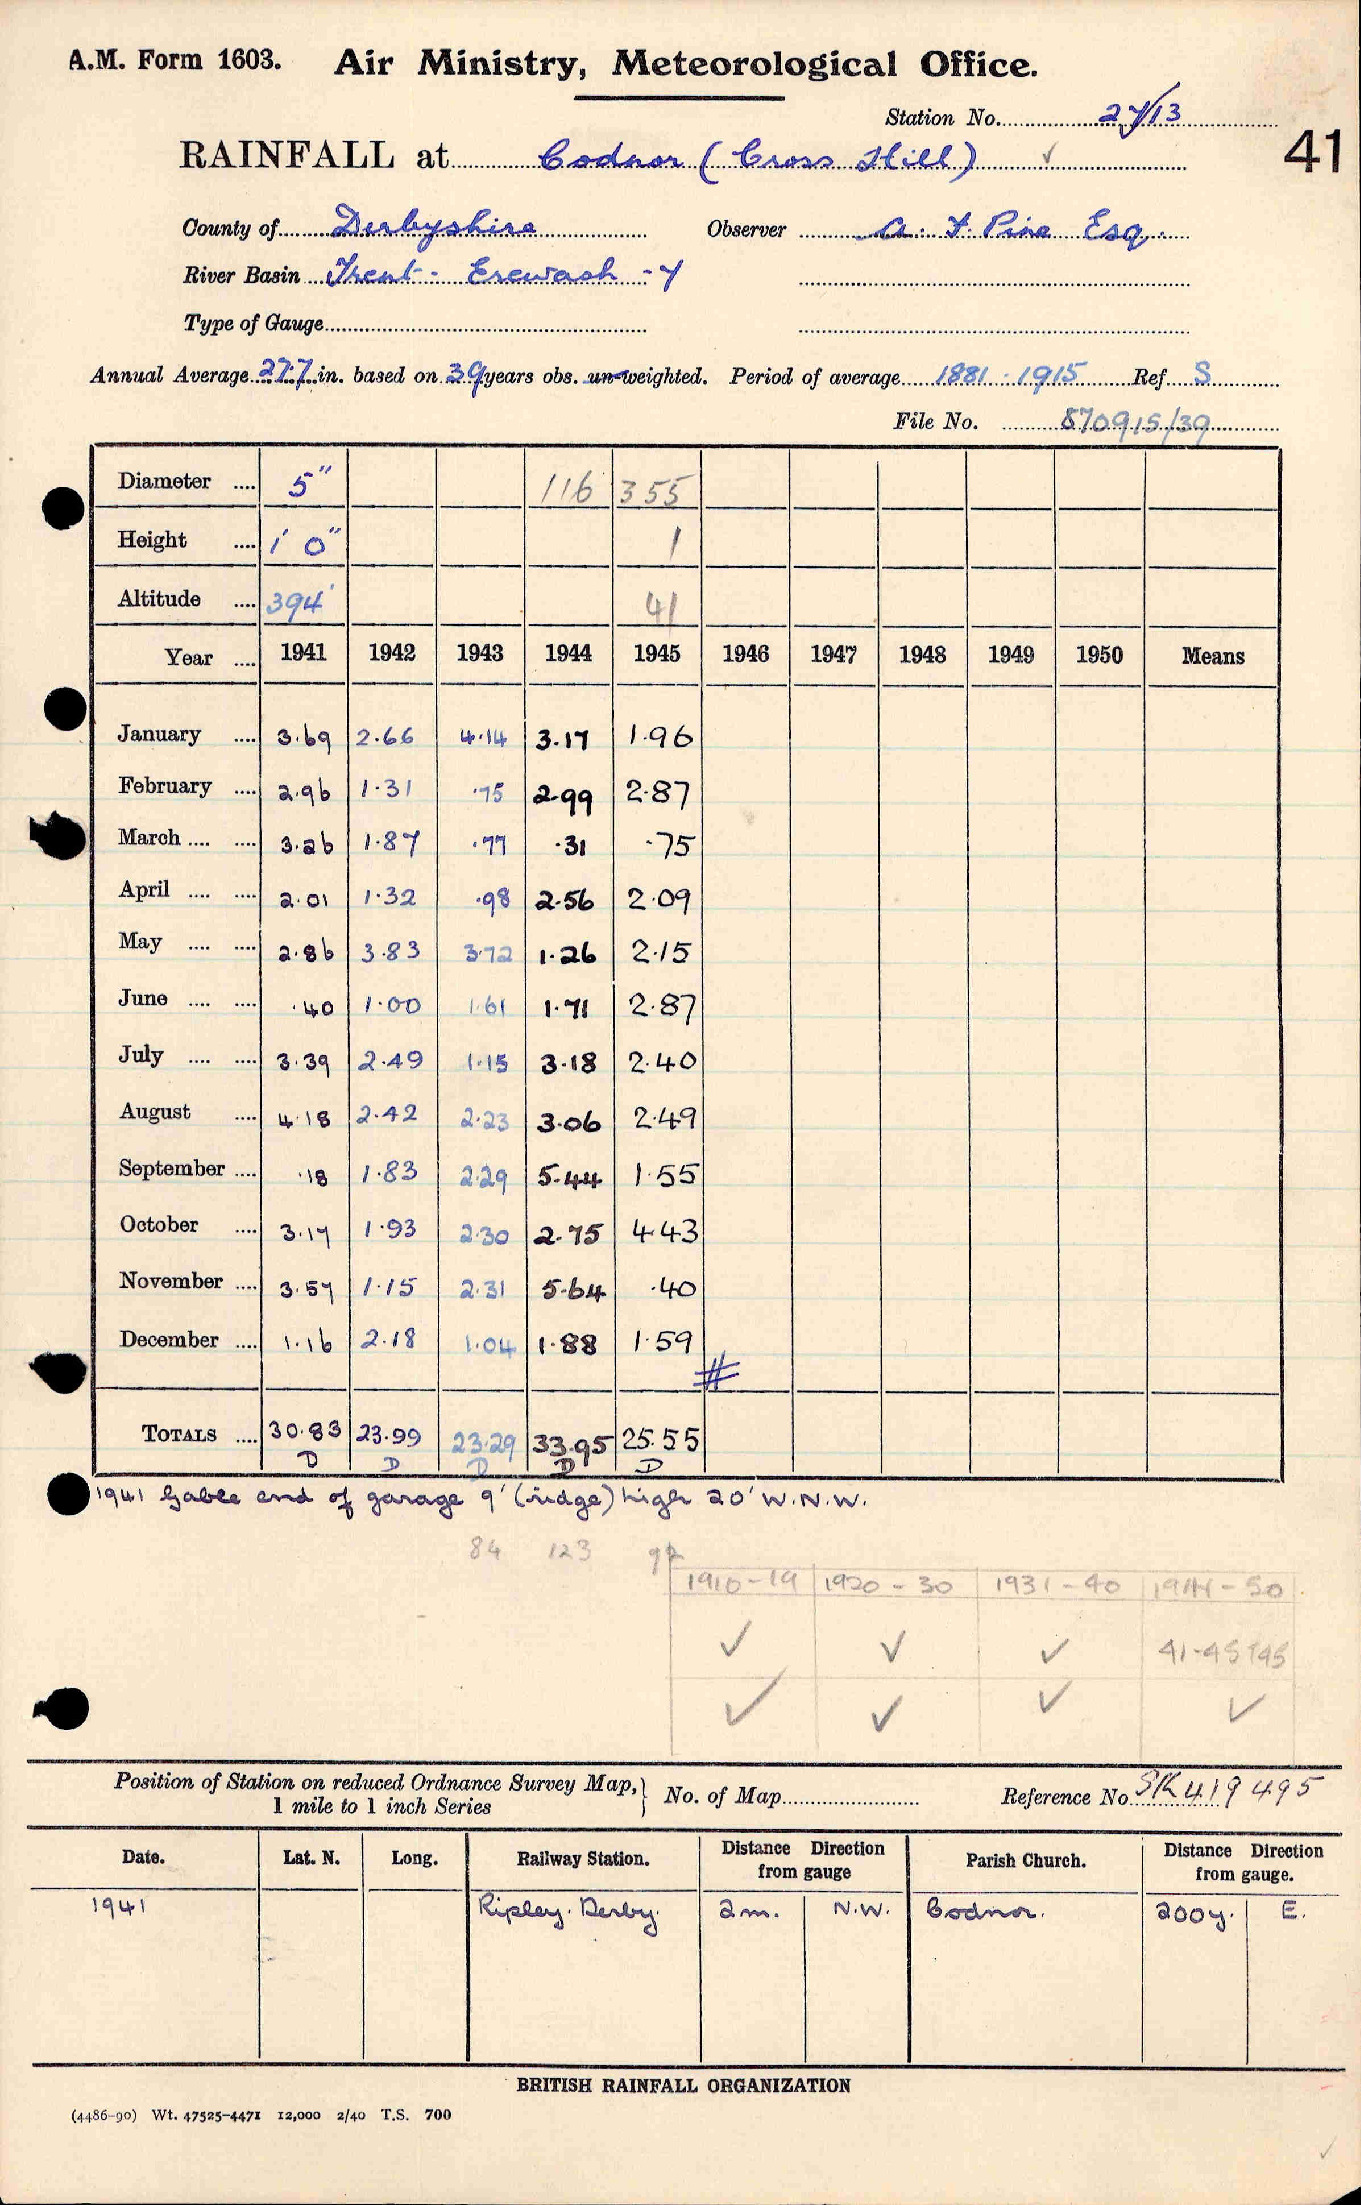 A.M. Form 1603. Air Ministry, Meteorological Office.
Station No. 27/13
RAINFALL at Codnor (Cross Hill) ✓
41
County of Derbyshire Observer A. F. Pine Esq.
River Basin Trent - Erewash - Y
Type of Gauge
Annual Average 27.7 in. based on 39 years obs. un-weighted. Period of average 1881 - 1915 Ref S
File No. 870915/39
Diameter .... 5" 116 355
Height .... 1' 0" 1
Altitude .... 394' 41
Year .... 1941 1942 1943 1944 1945 1946 1947 1948 1949 1950 Means
January .... 3.69 2.66 4.14 3.17 1.96
February .... 2.96 1.31 .75 2.99 2.87
March .... .... 3.26 1.87 .77 .31 .75
April .... .... 2.01 1.32 .98 2.56 2.09
May .... .... 2.86 3.83 3.72 1.26 2.15
June .... .... .40 1.00 1.61 1.71 2.87
July .... .... 3.39 2.49 1.15 3.18 2.40
August .... 4.18 2.42 2.23 3.06 2.49
September .... .18 1.83 2.29 5.44 1.55
October .... 3.17 1.93 2.30 2.75 4.43
November .... 3.57 1.15 2.31 5.64 .40
December .... 1.16 2.18 1.04 1.88 1.59
TOTALS .... 30.83 23.99 23.29 33.95 25.55
D D D D D
1941 Gable end of garage 9' (ridge) high 20' W.N.W.
84 123 92
1910-19 1920-30 1931-40 1941-50
✓ ✓ ✓ 41-45 T45
✓ ✓ ✓ ✓
Position of Station on reduced Ordnance Survey Map, 1 mile to 1 inch Series } No. of Map Reference No SK 419 495
Date. Lat. N. Long. Railway Station. Distance Direction from gauge Parish Church. Distance Direction from gauge.
1941 Ripley. Derby. 2m. N.W. Codnor. 200y. E.
BRITISH RAINFALL ORGANIZATION
(4486-90) Wt. 47525-4471 12,000 2/40 T.S. 700